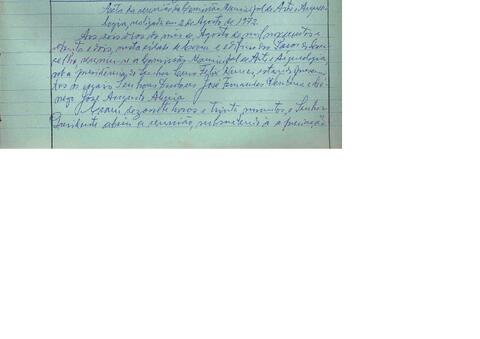 Acta da reunião da Comissão Municipal de Arte e Arqueo-
logia, realizada em 2 de Agosto de 1972.
Aos dois dias do mês de Agosto de mil novecentos e
setenta e dois, nesta cidade de e edifício dos Paços do Con-
celho reuniu-se a Comissão Municipal de Arte e Arqueologia,
sob a presidência do Senhor Felix estando presen-
tes os Senhores Doutores José Fernandes e
José Augusto
dezoito horas e trinta minutos, o Senhor
Presidente abriu a reunião, submetendo à apreciação